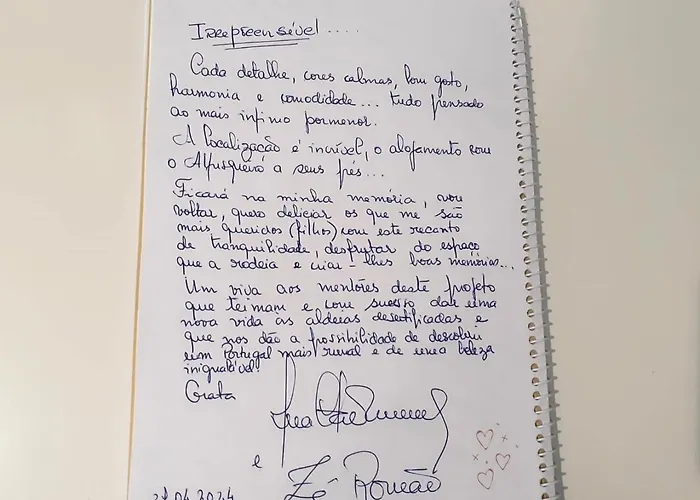 Irrepreensível ....
Cada detalhe, cores calmas, bom gosto,
harmonia e comodidade... tudo pensado
ao mais ínfimo pormenor.
A localização é incrível, o alojamento com
o Alfusqueiro a seus pés...
Ficará na minha memória, vou
voltar, quero deliciar os que me são
mais queridos (filhos) com este recanto
de tranquilidade, desfrutar do espaço
que a rodeia e criar-lhes boas memórias...
Um viva aos mentores deste projeto
que teimam e com sucesso dar uma
nova vida às aldeias desertificadas e
que nos dão a possibilidade de descobrir
um Portugal mais rural e de uma beleza
inigualável!
Grata
e
Zé Romão
21.04.2024